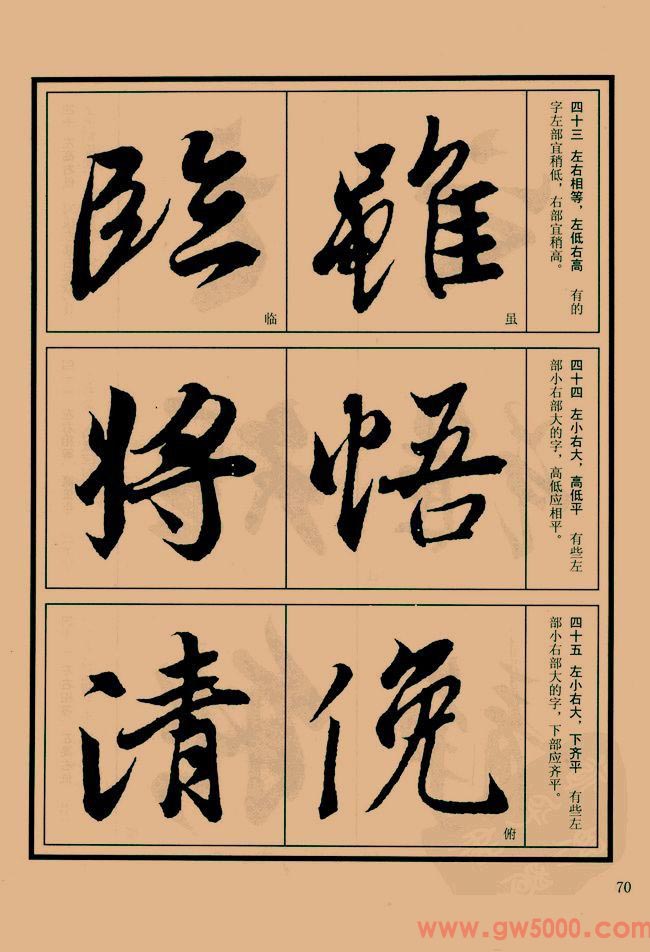 四十三 左右相等，左低右高 有的
字左部宜稍低，右部宜稍高。
雖
虽
臨
临
四十四 左小右大，高低平 有些左
部小右部大的字，高低应相平。
悟
将
四十五 左小右大，下齐平 有些左
部小右部大的字，下部应齐平。
俛
俯
清
70
www.gw5000.com